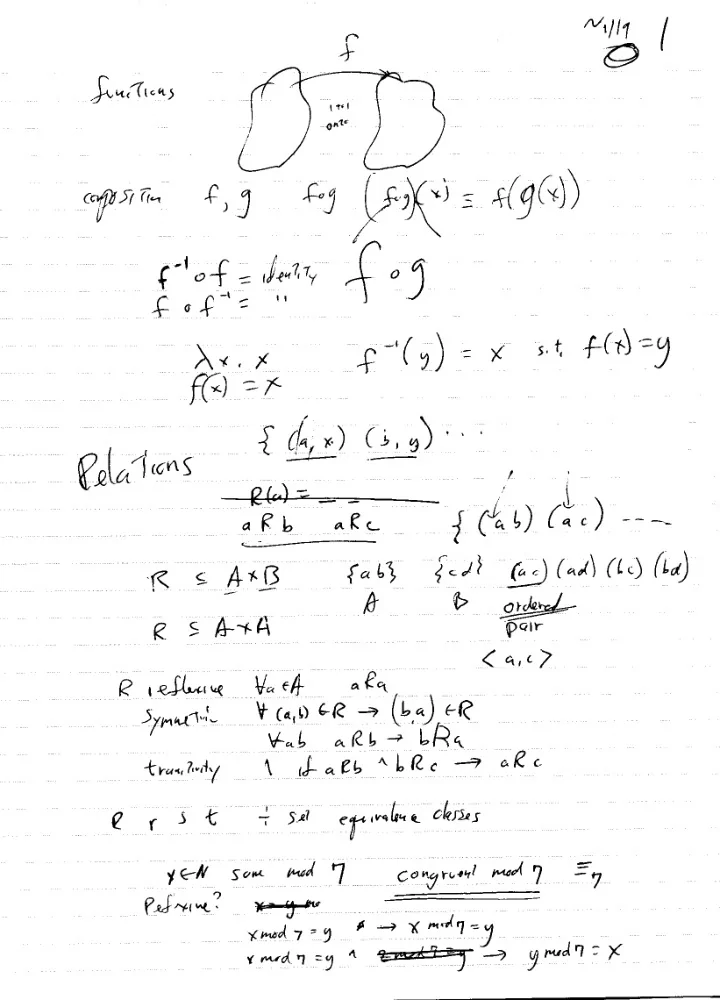 1
f
functions
1 to 1
onto
composition f, g f∘g (f∘g)(x) ≡ f(g(x))
f⁻¹∘f = identity f∘g
f∘f⁻¹ = "
λx. x f⁻¹(y) = x s.t. f(x) = y
f(x) = x
{ (a, x) (b, y) ...
Relations
R(a) = _ _ _
aRb aRc { (a b) (a c) ----
R ⊆ A×B {ab} {cd} (a c) (ad) (bc) (bd)
A B ordered
pair
R ⊆ A×A
<a,c>
R reflexive ∀a∈A aRa
Symmetric ∀(a,b)∈R → (b,a)∈R
∀ab aRb → bRa
transitivity if aRb ^ bRc → aRc
R r s t ÷ set equivalence classes
x∈N same mod 7 congruent mod 7 ≡₇
Reflexive?
x mod 7 = y → x mod 7 = y
x mod 7 = y ^ → y mod 7 = x